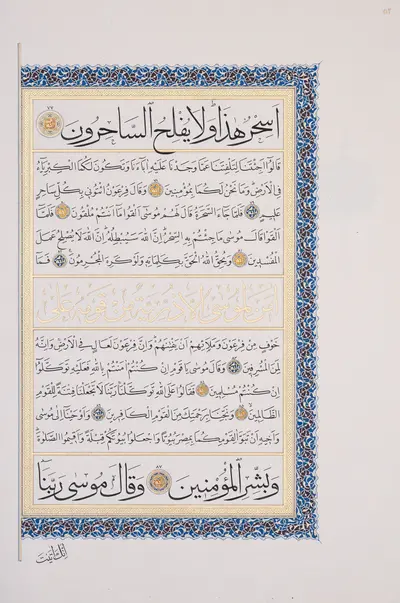 أسحر هذا ولا يفلح الساحرون ٧٧
قالوا أجئتنا لتلفتنا عما وجدنا عليه آباءنا وتكون لكما الكبرياء
في الأرض وما نحن لكما بمؤمنين وقال فرعون ائتوني بكل ساحر
عليم فلما جاء السحرة قال لهم موسى ألقوا ما أنتم ملقون فلما
ألقوا قال موسى ما جئتم به السحر إن الله سيبطله إن الله لا يصلح عمل
المفسدين ويحق الله الحق بكلماته ولو كره المجرمون فما
آمن لموسى إلا ذرية من قومه على
خوف من فرعون وملائهم أن يفتنهم وإن فرعون لعال في الأرض وإنه
لمن المسرفين وقال موسى يا قوم إن كنتم آمنتم بالله فعليه توكلوا
إن كنتم مسلمين فقالوا على الله توكلنا ربنا لا تجعلنا فتنة للقوم
الظالمين ونجنا برحمتك من القوم الكافرين وأوحينا إلى موسى
وأخيه أن تبوآ لقومكما بمصر بيوتا واجعلوا بيوتكم قبلة وأقيموا الصلاة
وبشر المؤمنين ٨٧ وقال موسى ربنا
إنك آتيت